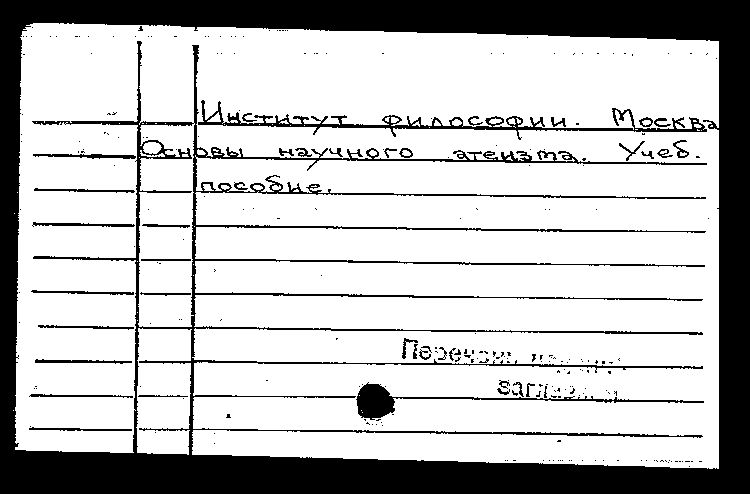 Институт философии. Москва
Основы научного атеизма. Учеб.
пособие.
Перечень